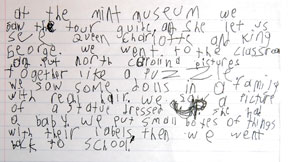 at the mint museum we
saw the tour guide and she let us
see queen charlotte and king
George. we went to the classroom
and put north carolina pictures
together like a puzzle
we saw some dolls in a family
with real hair. we saw a picture
of a statue dressed up she had
a baby. we put small boxes of things
with their labels then we went
back to school.